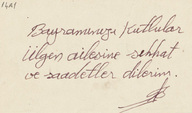 Bayramınızı Kutlular
Ülgen ailesine sıhhat
ve saadetler dilerim.